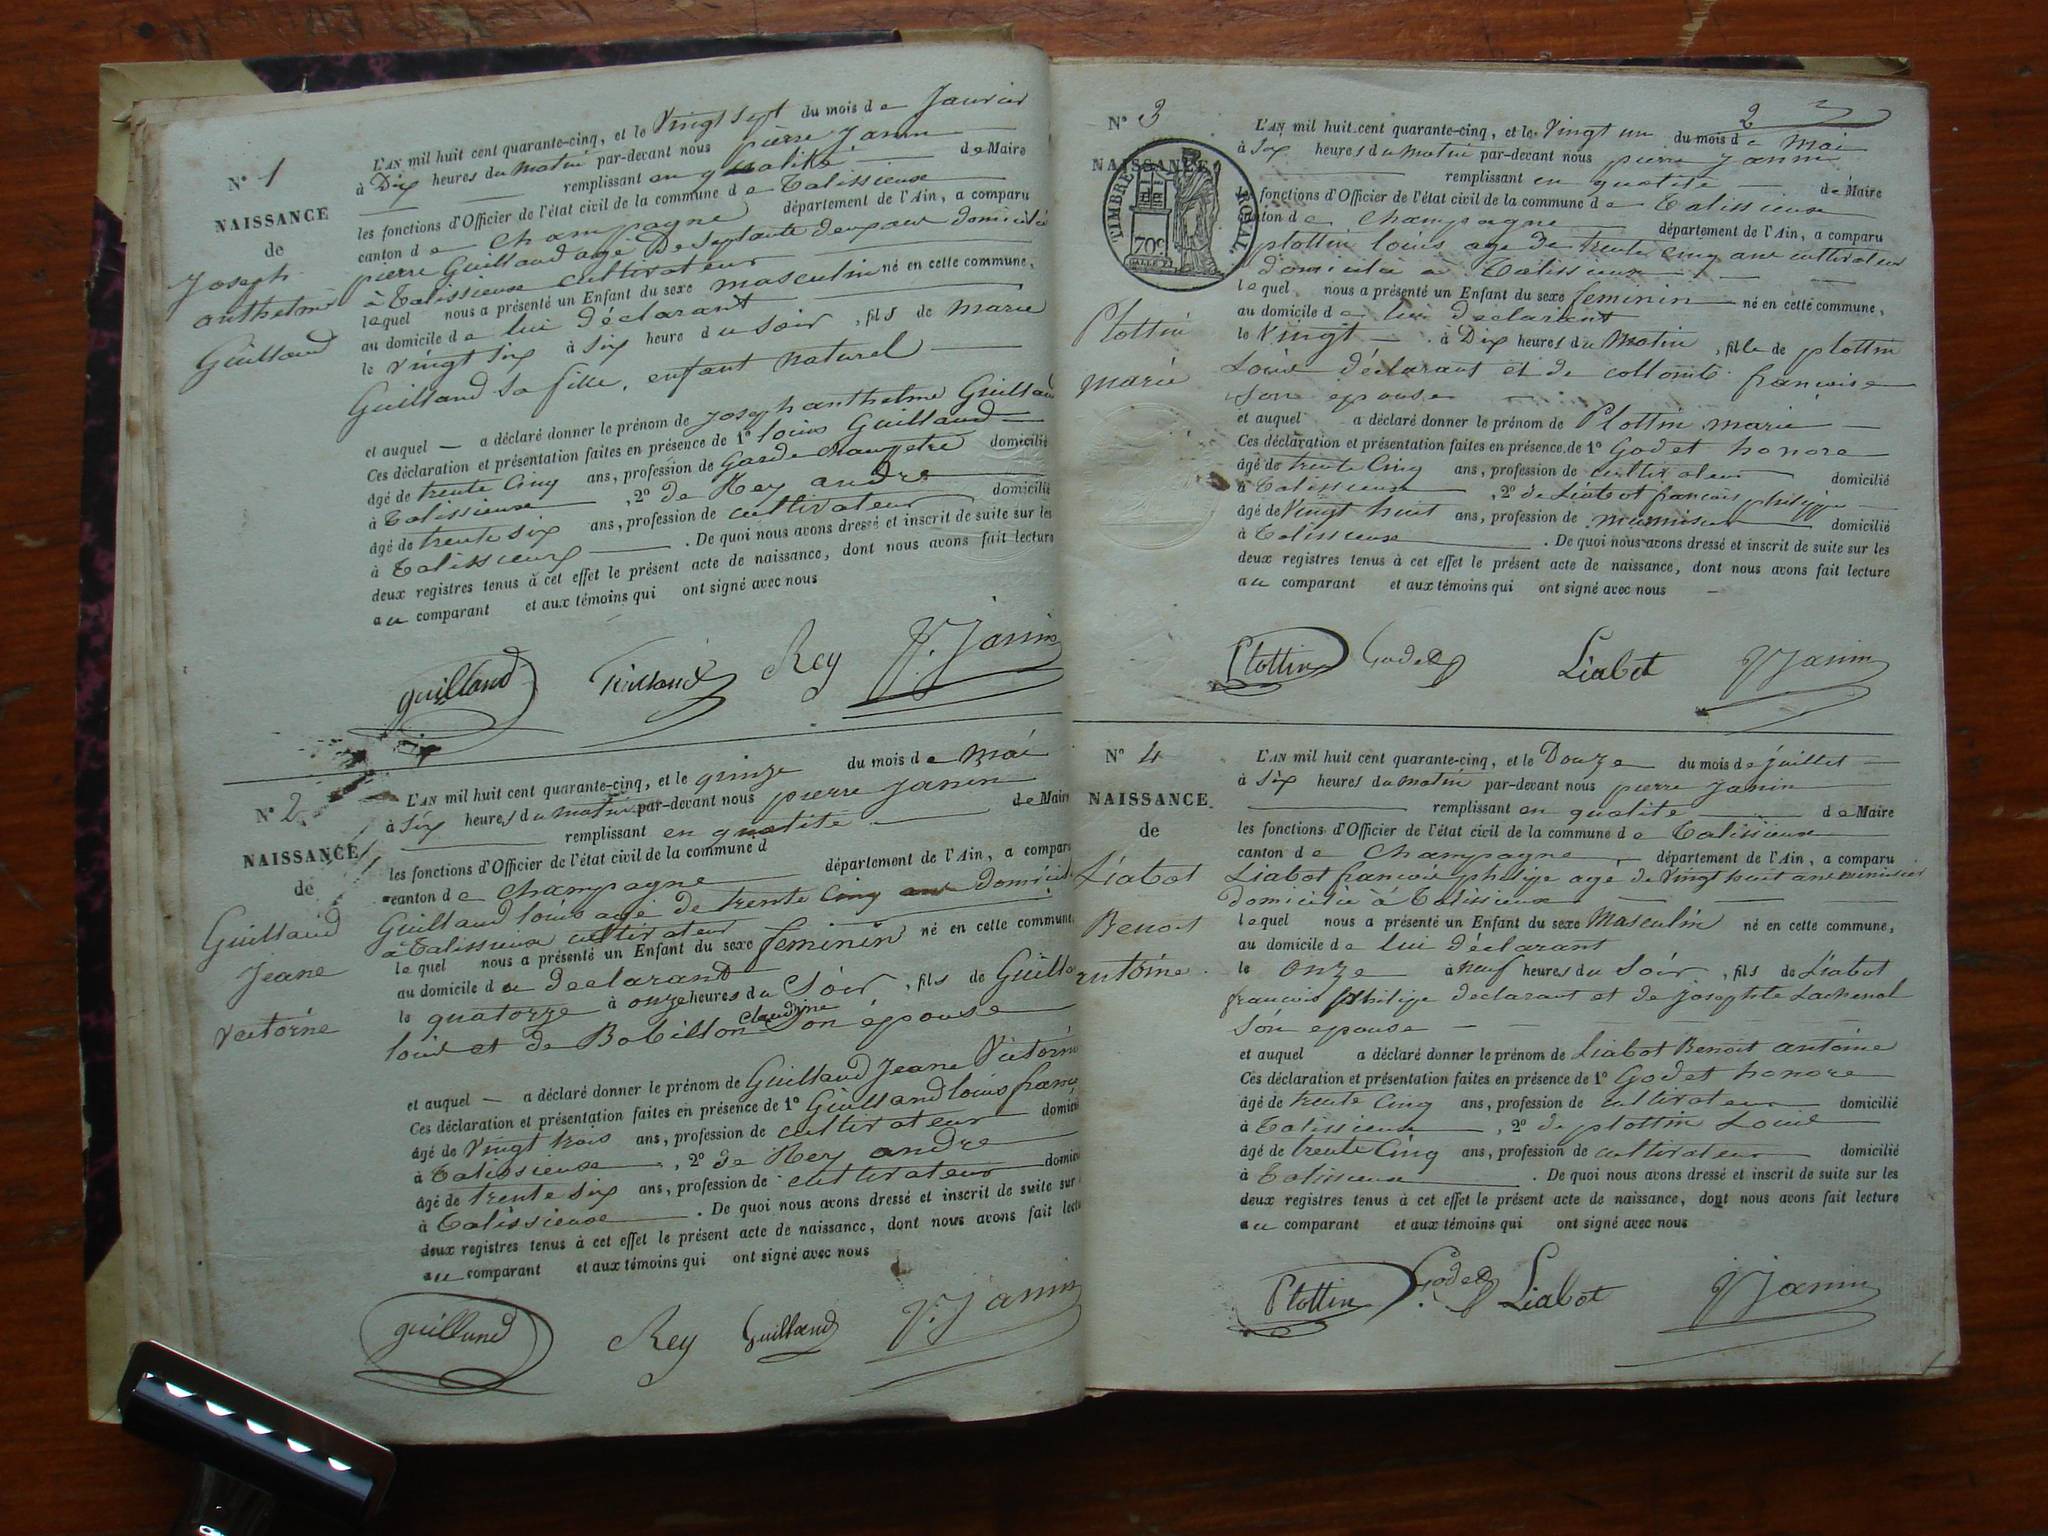 N° 1
NAISSANCE
de
Joseph
anthelme
Guilland
L'AN mil huit cent quarante-cinq, et le Vingt sept du mois de Janvier
à Dix heures du Matin par-devant nous pierre Janin
remplissant en qualité de Maire
les fonctions d'Officier de l'état civil de la commune de Talissieux
canton de Champagne département de l'Ain, a comparu
pierre Guilland agé De Septante deux ans domicilié
à Talissieux cultivateur
lequel nous a présenté un Enfant du sexe masculin né en cette commune,
au domicile de lui déclarant
le Vingt six à six heure du Soir, fils de marie
Guilland Sa fille, enfant naturel
et auquel — a déclaré donner le prénom de Joseph anthelme Guilland
Ces déclaration et présentation faites en présence de 1° louis Guilland
âgé de trente Cinq ans, profession de Garde Champetre domicilié
à Talissieux, 2° de Rey andre
âgé de trente six ans, profession de cultivateur domicilié
à Talissieux. De quoi nous avons dressé et inscrit de suite sur les
deux registres tenus à cet effet le présent acte de naissance, dont nous avons fait lecture
au comparant et aux témoins qui ont signé avec nous
guilland Guilland Rey P. Janin
N° 2
NAISSANCE
de
Guilland
Jeane
Victorine
L'AN mil huit cent quarante-cinq, et le quinze du mois de Mai
à six heures du matin par-devant nous pierre Janin
remplissant en qualité de Maire
les fonctions d'Officier de l'état civil de la commune d
canton de Champagne département de l'Ain, a comparu
Guilland louis agé de trente Cinq ans Domicilié
à Talissieux cultivateur
lequel nous a présenté un Enfant du sexe feminin né en cette commune,
au domicile du declarant
le quatorze à onze heures du Soir, fils de Guilland
louis et de Bobillon Claudine Son épouse
et auquel — a déclaré donner le prénom de Guilland Jeane Victorine
Ces déclaration et présentation faites en présence de 1° Guilland louis
âgé de Vingt trois ans, profession de cultivateur domicilié
à Talissieux, 2° de Rey andre
âgé de trente six ans, profession de cultivateur domicilié
à Talissieux. De quoi nous avons dressé et inscrit de suite sur
deux registres tenus à cet effet le présent acte de naissance, dont nous avons fait lecture
au comparant et aux témoins qui ont signé avec nous
guilland Rey Guilland P. Janin
2
N° 3
NAISSANCE
TIMBRE ROYAL
70c
Plottin
marie
L'AN mil huit cent quarante-cinq, et le Vingt un du mois de Mai
à Six heures du Matin par-devant nous pierre Janin
remplissant en qualité de Maire
fonctions d'Officier de l'état civil de la commune de Talissieux
canton de Champagne département de l'Ain, a comparu
plottin louis agé de trente cinq ans cultivateur
domicilié à Talissieux
lequel nous a présenté un Enfant du sexe feminin né en cette commune,
au domicile de lui declarant
le Vingt à Dix heures du Matin, fille de plottin
Louis déclarant et de françoise
Son épouse
et auquel a déclaré donner le prénom de Plottin marie
Ces déclaration et présentation faites en présence de 1° Godet honore
âgé de trente Cinq ans, profession de cultivateur domicilié
à Talissieux, 2° de Liabot francois philippe
âgé de Vingt huit ans, profession de domicilié
à Talissieux. De quoi nous avons dressé et inscrit de suite sur les
deux registres tenus à cet effet le présent acte de naissance, dont nous avons fait lecture
au comparant et aux témoins qui ont signé avec nous
Plottin Godet Liabot P Janin
N° 4
NAISSANCE.
de
Liabot
Benoit
antoine
L'AN mil huit cent quarante-cinq, et le Douze du mois de juillet
à six heures du matin par-devant nous pierre Janin
remplissant en qualité de Maire
les fonctions d'Officier de l'état civil de la commune de Talissieux
canton de Champagne département de l'Ain, a comparu
Liabot francois philipe agé de Vingt huit ans
domicilié à Talissieux
lequel nous a présenté un Enfant du sexe Masculin né en cette commune,
au domicile de lui déclarant
le onze à neuf heures du Soir, fils de Liabot
francois philipe declarant et de Josephte Lachenal
Son epouse
et auquel a déclaré donner le prénom de Liabot Benoit antoine
Ces déclaration et présentation faites en présence de 1° Godet honore
âgé de trente Cinq ans, profession de cultivateur domicilié
à Talissieux, 2° de plottin Louis
âgé de trente Cinq ans, profession de cultivateur domicilié
à Talissieux. De quoi nous avons dressé et inscrit de suite sur les
deux registres tenus à cet effet le présent acte de naissance, dont nous avons fait lecture
au comparant et aux témoins qui ont signé avec nous
Plottin Godet Liabot P Janin